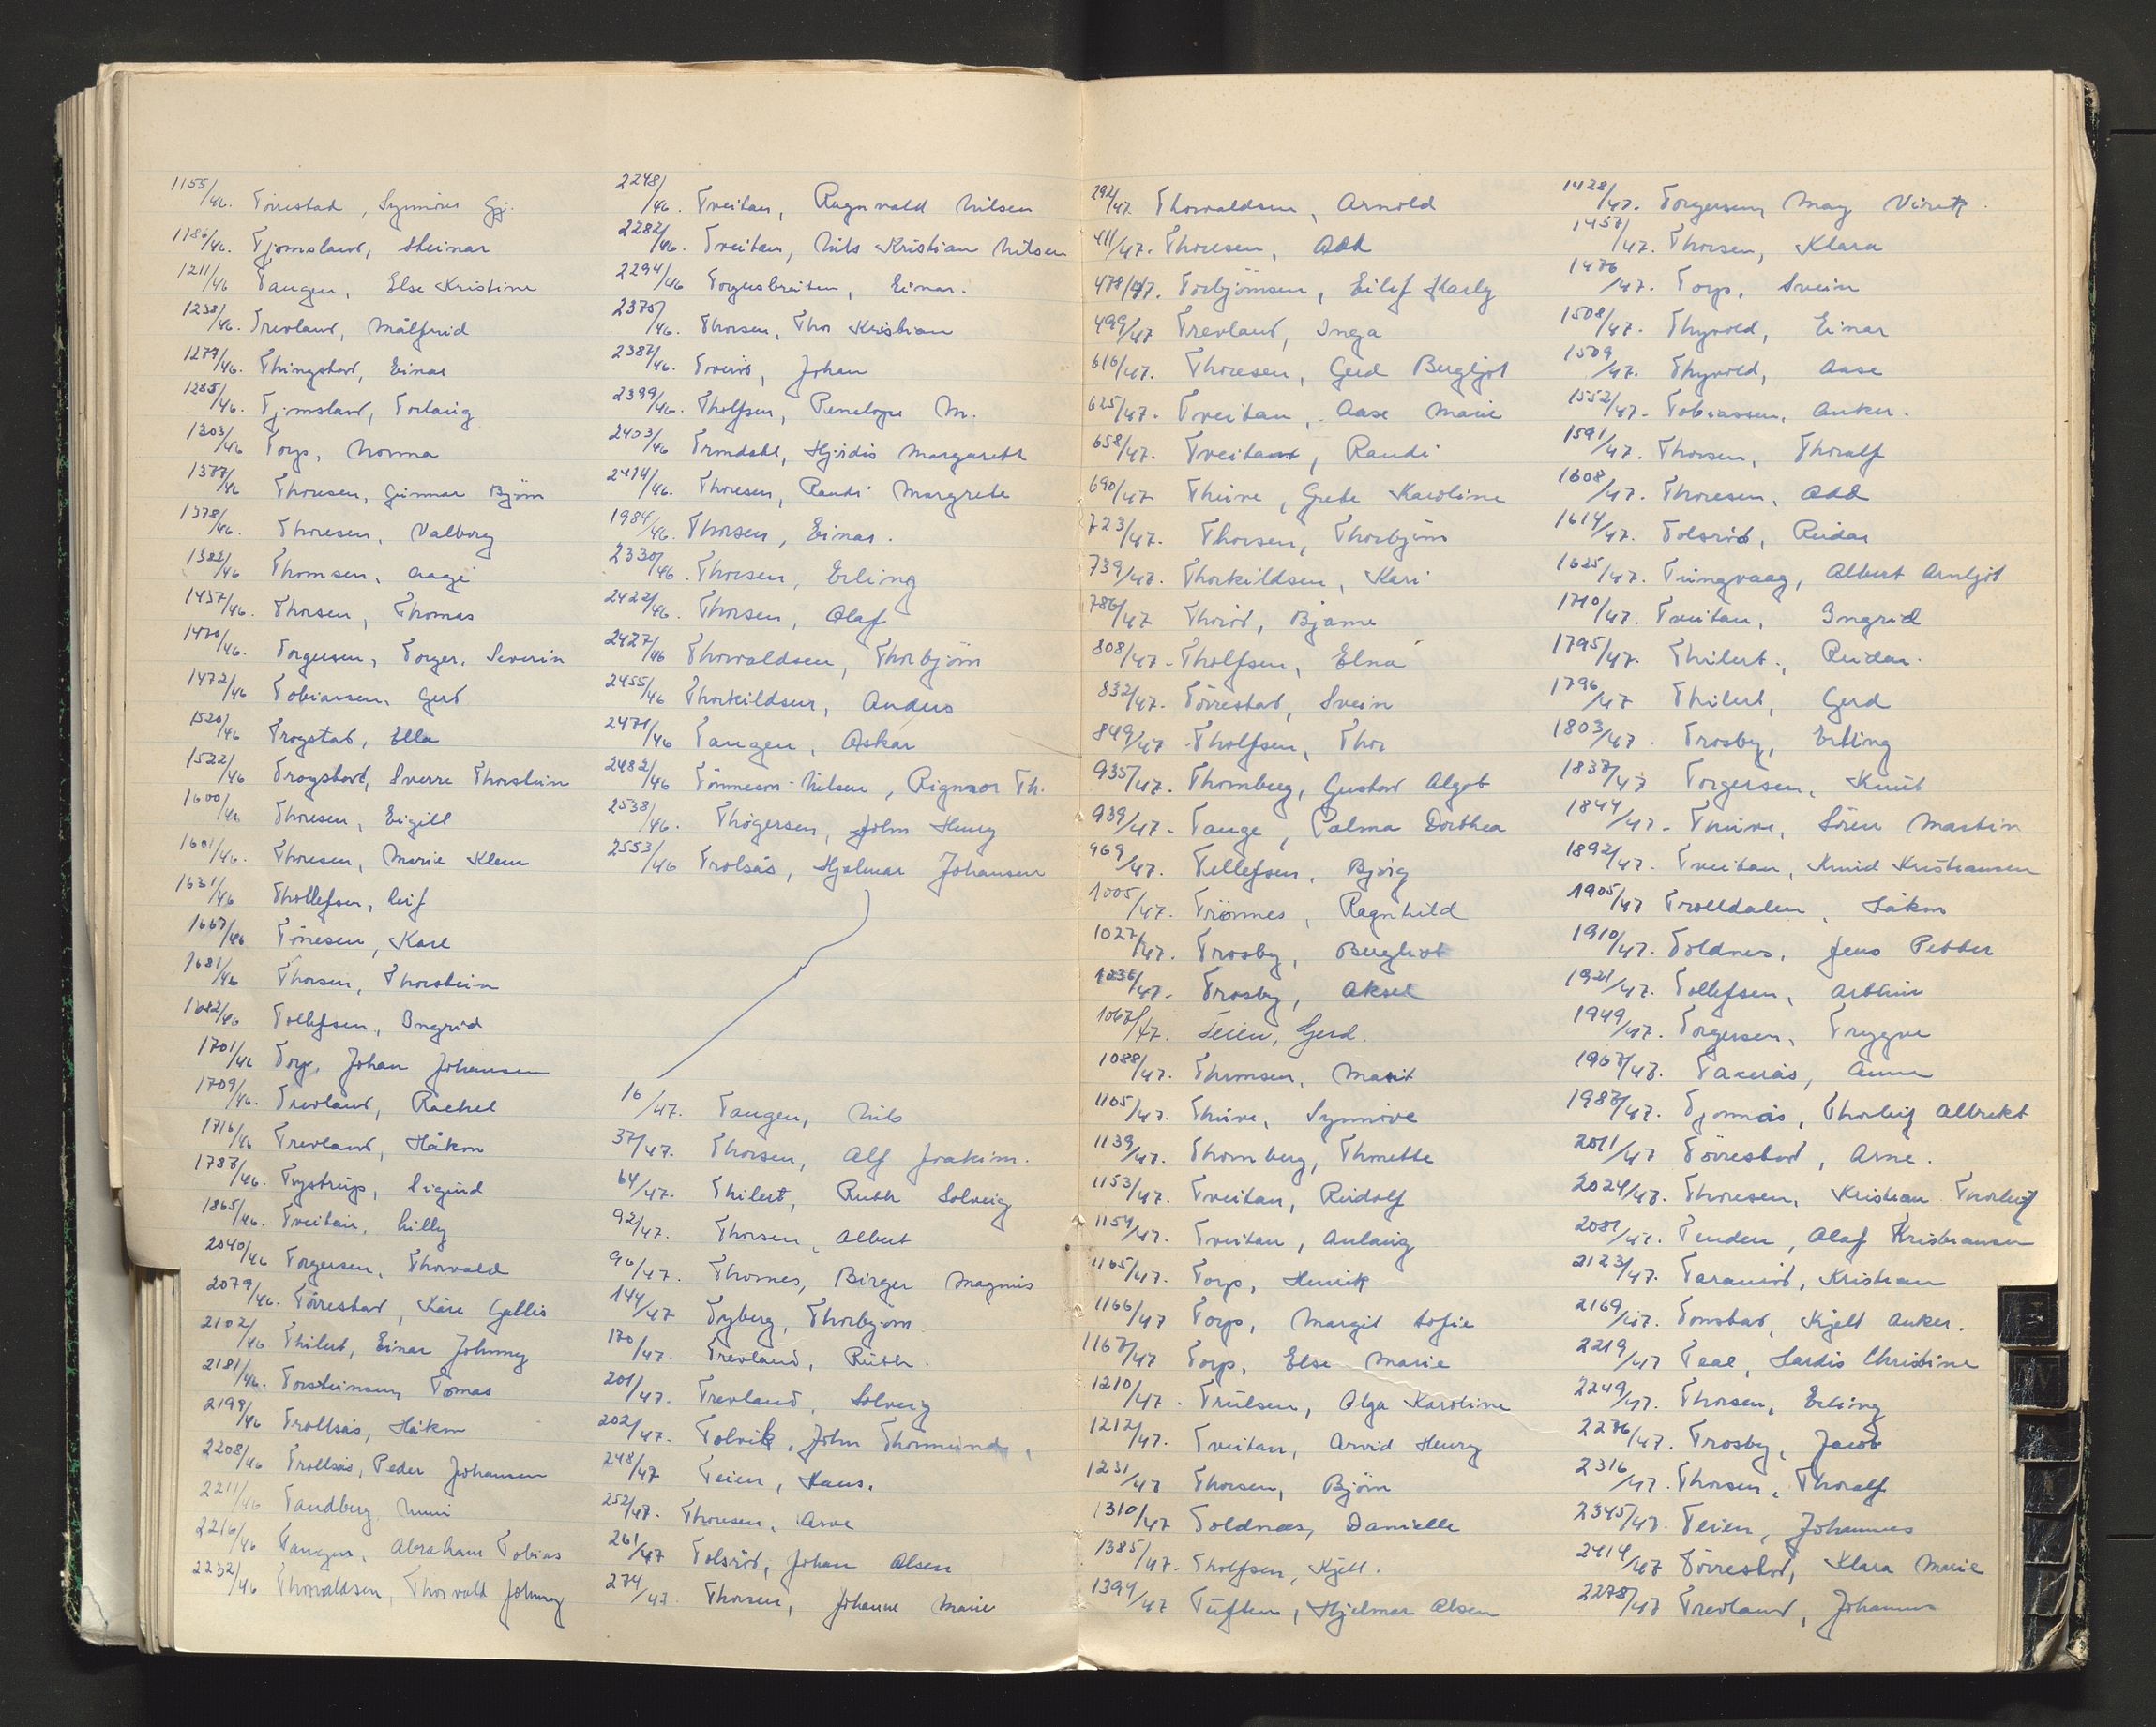 1155/46. Törrestad, Synnöve Gj.
1186/46. Tjomsland, Steinar
1211/46 Tangen, Else Kristine
1238/46. Trevland, Målfrid
1277/46. Thingstad, Einar
1285/46. Tjomsland, Torlaug
1303/46 Torp, Norma
1377/46 Thoresen, Gunnar Björn
1378/46. Thoresen, Valborg
1382/46 Thomsen, Aage
1437/46. Thorsen, Thomas
1470/46. Torgersen, Torger. Severin
1472/46 Tobiassen, Gerd
1520/46 Trogstad, Ella
1522/46 Trogstad, Sverre Thorstein
1600/46 Thoresen, Eigill
1601/46. Thoresen, Marie Klem
1631/46 Thollefsen, Leif
1667/46 Tönesen, Karl
1681/46 Thorsen, Thorstein
1682/46 Tollefsen, Ingrid
1701/46 Torp, Johan Johansen
1709/46. Trevland, Rachel
1716/46 Trevland, Håkon
1787/46. Trystrup, Sigurd
1865/46. Tveitan, Lilly
2040/46 Torgersen, Thorvald
2079/46. Törrestad, Kåre Gallis
2102/46 Thilert, Einar Johnny
2181/46. Torsteinsen, Tomas
2199/46 Trollsås, Håkon
2208/46 Trollsås, Peder Johansen
2211/46 Tandberg,
2216/46 Tangen, Abraham Tobias
2232/46 Thorvaldsen, Thorvald Johnny
2248/46. Tveitan, Ragnvald Nilsen
2282/46. Tveitan, Nils Kristian Nilsen
2294/46 Torgersbråten, Einar.
2375/46. Thorsen, Thor Kristian
2387/46. Tveit, Johan
2399/46. Tholfsen, Penelope M.
2403/46 Trondahl, Hjördis Margareth
2414/46. Thoresen, Randi Margrete
1984/46. Thorsen, Einar.
2330/46. Thorsen, Erling
2422/46. Thorsen, Olaf
2427/46 Thorvaldsen, Thorbjörn
2455/46 Thorkildsen, Anders
2471/46 Tangen, Oskar
2482/46 Tönneson-Nilsen, Rigmor Th.
2538/46. Thögersen, John Henry
2553/46 Trolsås, Hjalmar Johansen
16/47. Tangen, Nils
37/47. Thorsen, Alf Joakim.
64/47. Thilert, Ruth Solveig
92/47. Thorsen, Albert
96/47. Thornes, Birger Magnus
144/47 Tyberg, Thorbjörn
170/47. Trevland, Ruth.
201/47. Trevland, Solveig
202/47. Tolvik, John Thormund
248/47 Teien, Hans.
252/47. Thoresen, Arve
261/47 Tolsröd, Johan Olsen
274/47. Thorsen, Johanne Marie
292/47 Thorvaldsen, Arnold
411/47. Thoresen, Odd
478/47. Torbjörnsen, Eilef Karly
499/47 Trevland, Inga
616/47. Thoresen, Gerd Bergljot
625/47. Tveitan, Aase Marie
658/47. Tveitan, Randi
690/47 Thune, Grete Karoline
723/47. Thorsen, Thorbjörn
739/47. Thorkildsen, Kari
786/47 Thoröd, Bjarne
808/47. Tholfsen, Elna
832/47. Törrestad, Svein
849/47 Tholfsen, Thor
935/47. Thornberg, Gustav Algot
939/47. Tange, Palma Dorthea
969/47. Tellefsen, Björg
1005/47. Trönnes, Ragnhild
1027/47. Trosby, Bergliot
1036/47. Trosby, Aksel
1067/47. Teien, Gerd.
1088/47. Thomsen, Marit
1105/47. Thune, Synnöve
1139/47. Thornberg, Thonette
1153/47. Tveitan, Rudolf
1154/47. Tveitan, Anlaug
1165/47. Torp, Henrik
1166/47 Torp, Margit Sofie
1167/47 Torp, Else Marie
1210/47. Trulsen, Olga Karoline
1212/47. Tveitan, Arvid Henry
1231/47 Thorsen, Björn
1310/47 Toldnæs, Danielle
1385/47. Tholfsen, Kjell.
1394/47 Tuften, Hjelmar Olsen
1428/47. Torgersen, May Virek.
1457/47. Thorsen, Klara
1476/47. Torp, Svein
1508/47. Thyvold, Einar
1509/47. Thyvold, Aase
1552/47. Tobiassen, Anker.
1591/47. Thorsen, Thoralf
1608/47. Thoresen, Odd
1614/47. Tolsröd, Reidar
1625/47. Tungvaag, Albert Arnljot
1710/47. Tveitan, Ingrid
1795/47. Thilert, Reidar.
1796/47 Thilert, Gerd
1803/47. Trosby, Erling
1837/47 Torgersen, Knut
1844/47. Thune, Sören Martin
1892/47. Tveitan, Knud Kristiansen
1905/47 Trolldalen, Håkon
1910/47. Toldnes, Jens Petter
1921/47. Tollefsen, Arthur
1949/47. Torgersen, Trygve
1967/47. Takerås, Anne
1987/47. Tjönnås, Thorleif Albrekt
2011/47 Törrestad, Arne.
2024/47. Thoresen, Kristian Thorleif
2081/47. Tenden, Olaf Kristiansen
2123/47. Tararöd, Kristian
2169/47. Tomstad, Kjell Anker.
2219/47 Teal, Hardis Christine
2249/47. Thorsen, Erling
2276/47. Trosby, Jacob
2316/47. Thorsen, Thoralf
2345/47. Teien, Johannes
2414/47 Törrestad, Klara Marie
2278/47 Trevland, Johannes